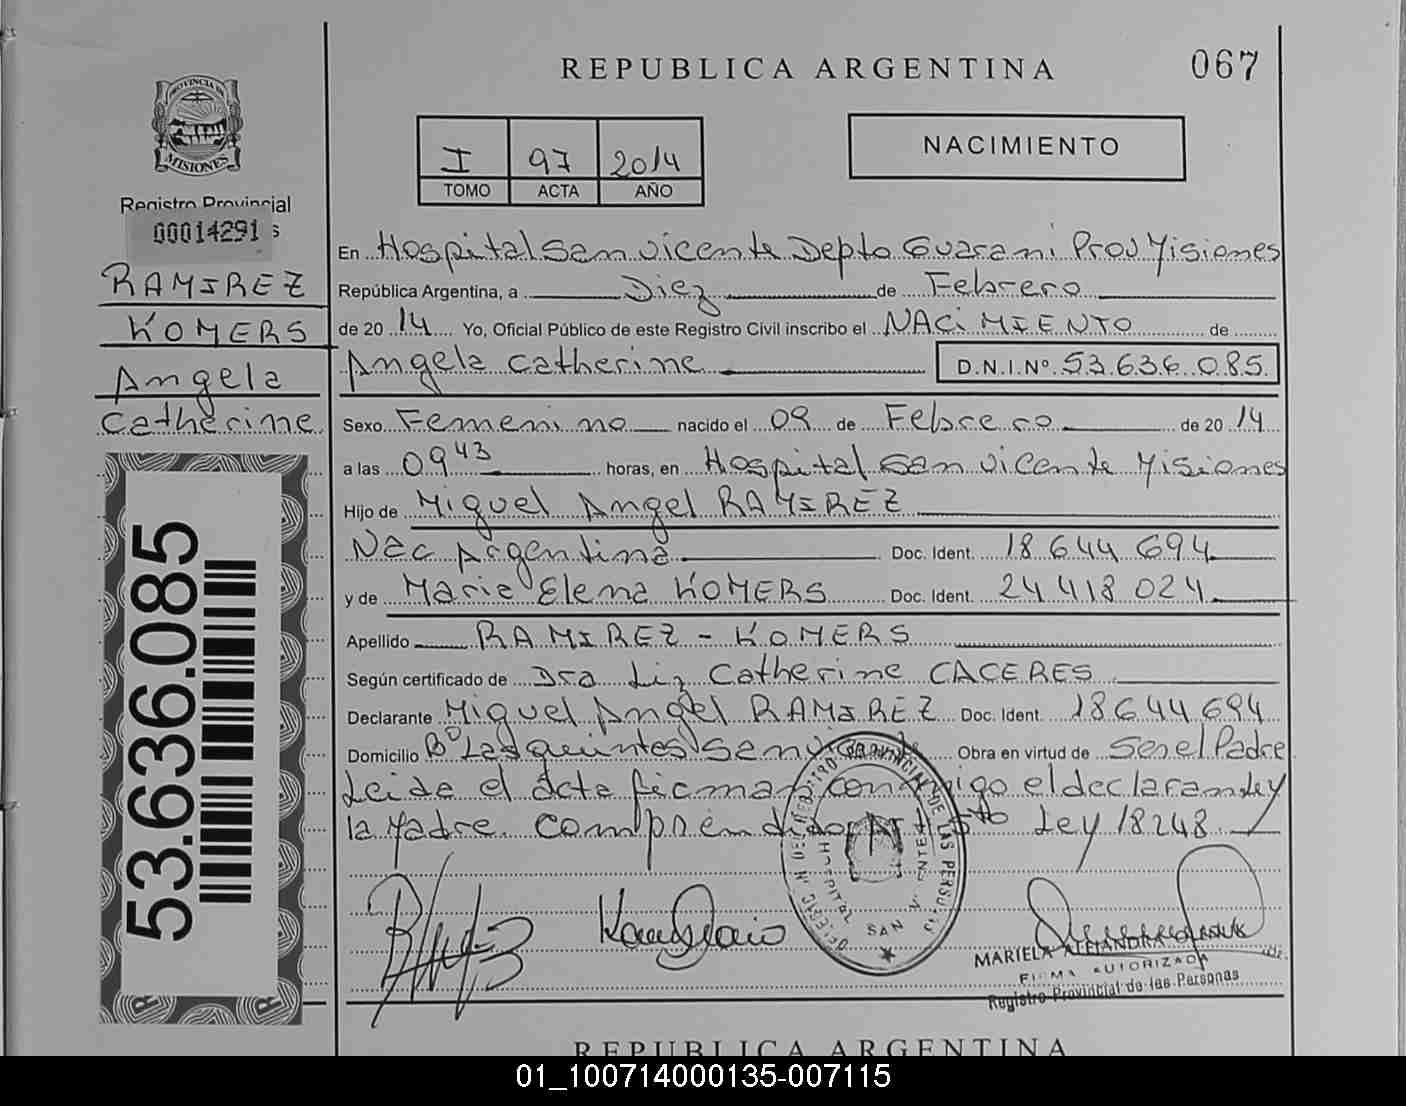 REPUBLICA ARGENTINA
067
PROVINCIA DE
MISIONES
Registro Provincial
00014291
RAMIREZ
KOMERS
Angela
Catherine
53.636.085
I 97 2014
TOMO ACTA AÑO
NACIMIENTO
En Hospital San Vicente Depto Guarani Prov Misiones
República Argentina, a Diez de Febrero
de 2014 Yo, Oficial Público de este Registro Civil inscribo el NACIMIENTO de
Angela Catherine D.N.I.Nº 53.636.085
Sexo Femenino nacido el 09 de Febrero de 2014
a las 09 43 horas, en Hospital San Vicente Misiones
Hijo de Miguel Angel RAMIREZ
Nac Argentina Doc. Ident. 18 644 694
y de Maria Elena KOMERS Doc. Ident. 24 418 024
Apellido RAMIREZ - KOMERS
Según certificado de Dra Liz Catherine CACERES
Declarante Miguel Angel RAMIREZ Doc. Ident. 18644694
Domicilio Bº Las quintas San Vicente Obra en virtud de Ser el Padre
Leida el acta firman conmigo el declarante y
la Madre. comprendido Ley 18248
REGISTRO PROVINCIAL DE LAS PERSONAS
HOSPITAL SAN VICENTE
MARIELA ALEJANDRA
FIRMA AUTORIZADA
Registro Provincial de las Personas
REPUBLICA ARGENTINA
01_100714000135-007115